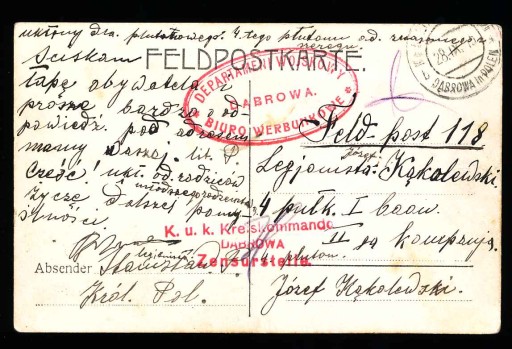 ukłony dla. plutokowego. 4 tego plutonu od.
FELDPOSTKARTE.
ściskam
łapę obywatela i
proszę bardzo o od-
powiedź. pod adresem
mamy Dasza. lit. P
Cześć! ukł. od rodziców
Życzę dalszej pomy-
ślności
Absender Stanisław
Król. Pol.
DEPARTAMENT WOJSKOWY
DĄBROWA.
* BIURO WERBUNKOWE *
DĄBROWA in POLEN
Feld-post 118
Józef
Legjonista: Kąkolewski.
4 pułk. I baon.
II ga kompanja.
4 pluton.
Józef Kąkolewski.
K. u. k. Kreiskommando
DĄBROWA
Zensurstelle.